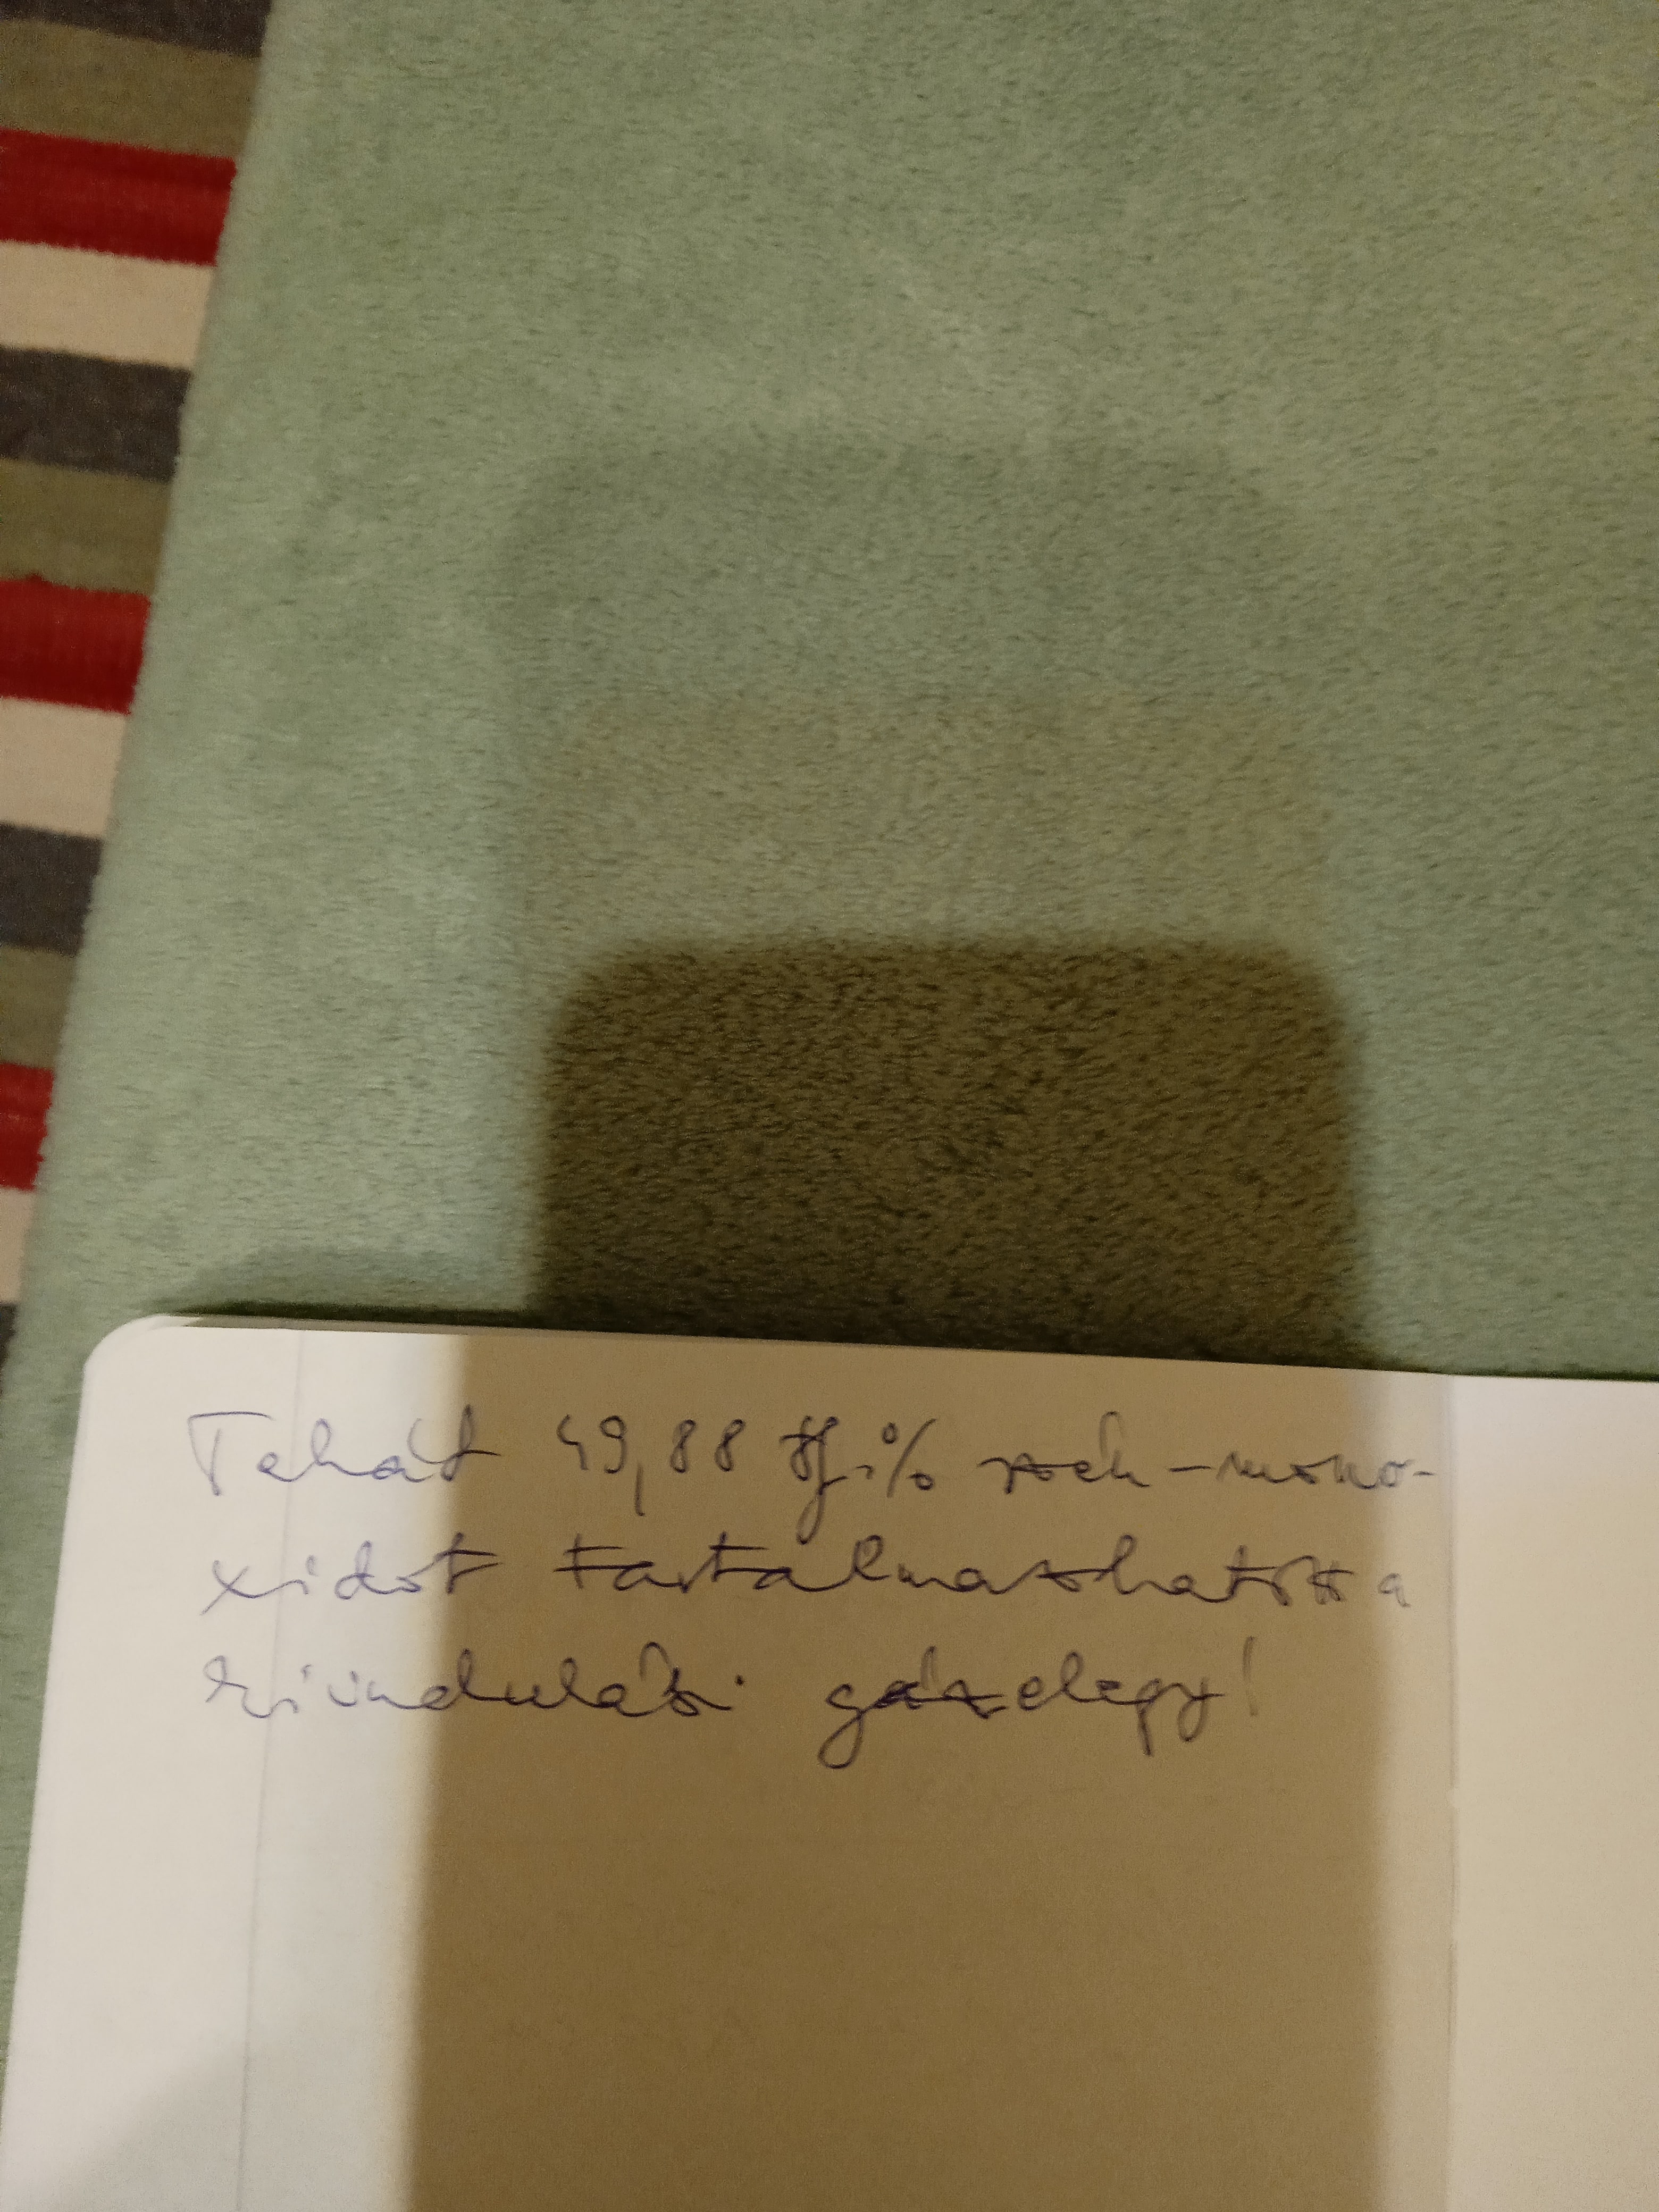 Tehát 49,88 tf.% szén-mono-
xidot tartalmazhatott a
kiindulási gázelegy!